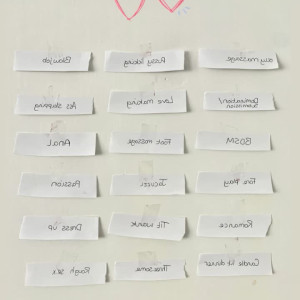 Blow job
Pussy licking
massage
Ass slapping
Love making
Domination/
Submission
Anal
Foot massage
BDSM
Passion
Jacuzzi
Fore Play
Dress up
Tit wank
Romance
Rough sex
Threesome
Candle lit dinner